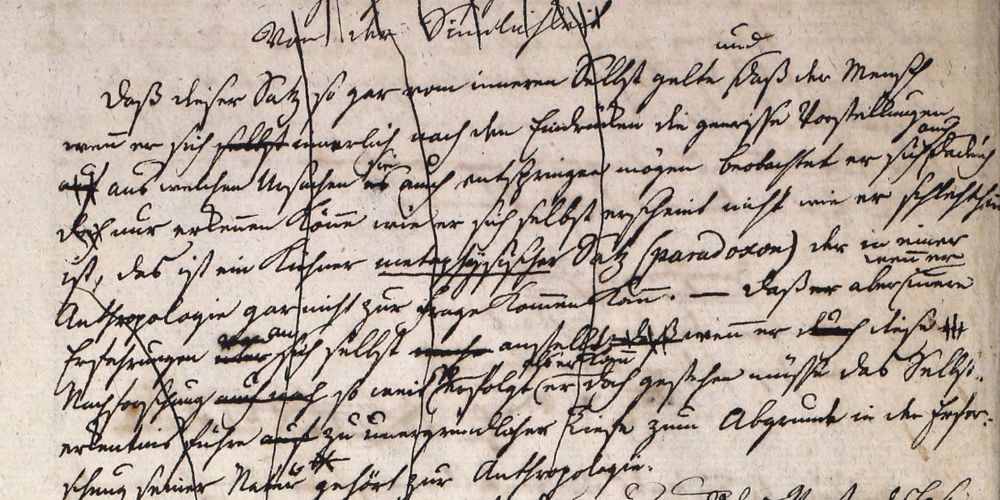 Von der Sinnlichkeit
und
Daß dieser Satz so gar vom inneren Selbst gelte daß der Mensch
wenn er sich selbst innerlich nach den Eindrücken die gewisse Vorstellungen
auch
auf aus welchen Ursachen sie auch entspringen mögen beobachtet er sich dadurch
doch nur erkennen könne wie er sich selbst erscheint nicht wie er schlechthin
ist, das ist ein kühner metaphysischer Satz (paradoxon) der in einer
wenn er
Anthropologie gar nicht zur Frage kommen kann. — Daß er aber innere
an
Erfahrungen sich selbst anstellt daß wenn er diese
als er kann
Nachforschung auch noch so weit verfolgt er doch gestehen müsse das Selbst-
erkentnis führe zu unergründlicher Tiefe zum Abgrunde in der Erfor-
schung seiner Natur gehört zur Anthropologie.